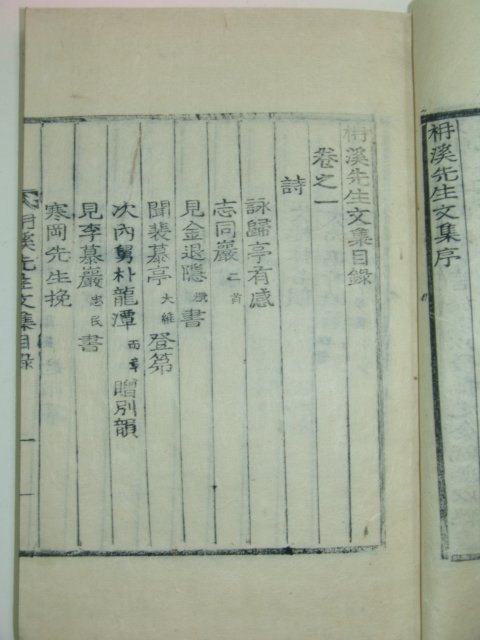 枏溪先生文集序
枏溪先生文集目錄
卷之一
詩
詠歸亭有感
志同巖 二首
見金退隱 書
聞裴慕亭 大維 登第
次內舅朴龍潭 而章 贈別韻
見李慕巖 忠民 書
寒岡先生挽
枏溪先生文集目錄 一